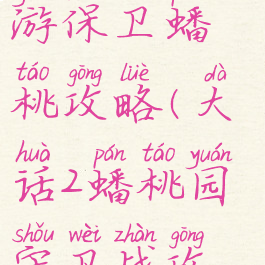 游保卫蟠
táo gōng lüè dà
桃攻略(大
huà pán táo yuán
话2蟠桃园
shǒu wèi zhàn gōng
守卫战攻